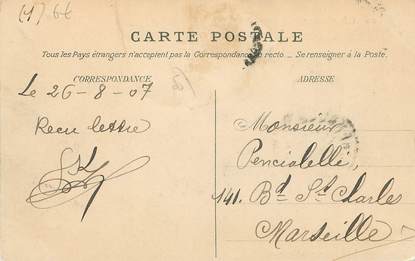 CARTE POSTALE
Tous les Pays étrangers n'acceptent pas la Correspondance au recto ... Se renseigner à la Poste.
CORRESPONDANCE
ADRESSE
Le 26-8-07
Recu lettre
Monsieur
Pencialelli,
141. Bd St Charles
Marseille